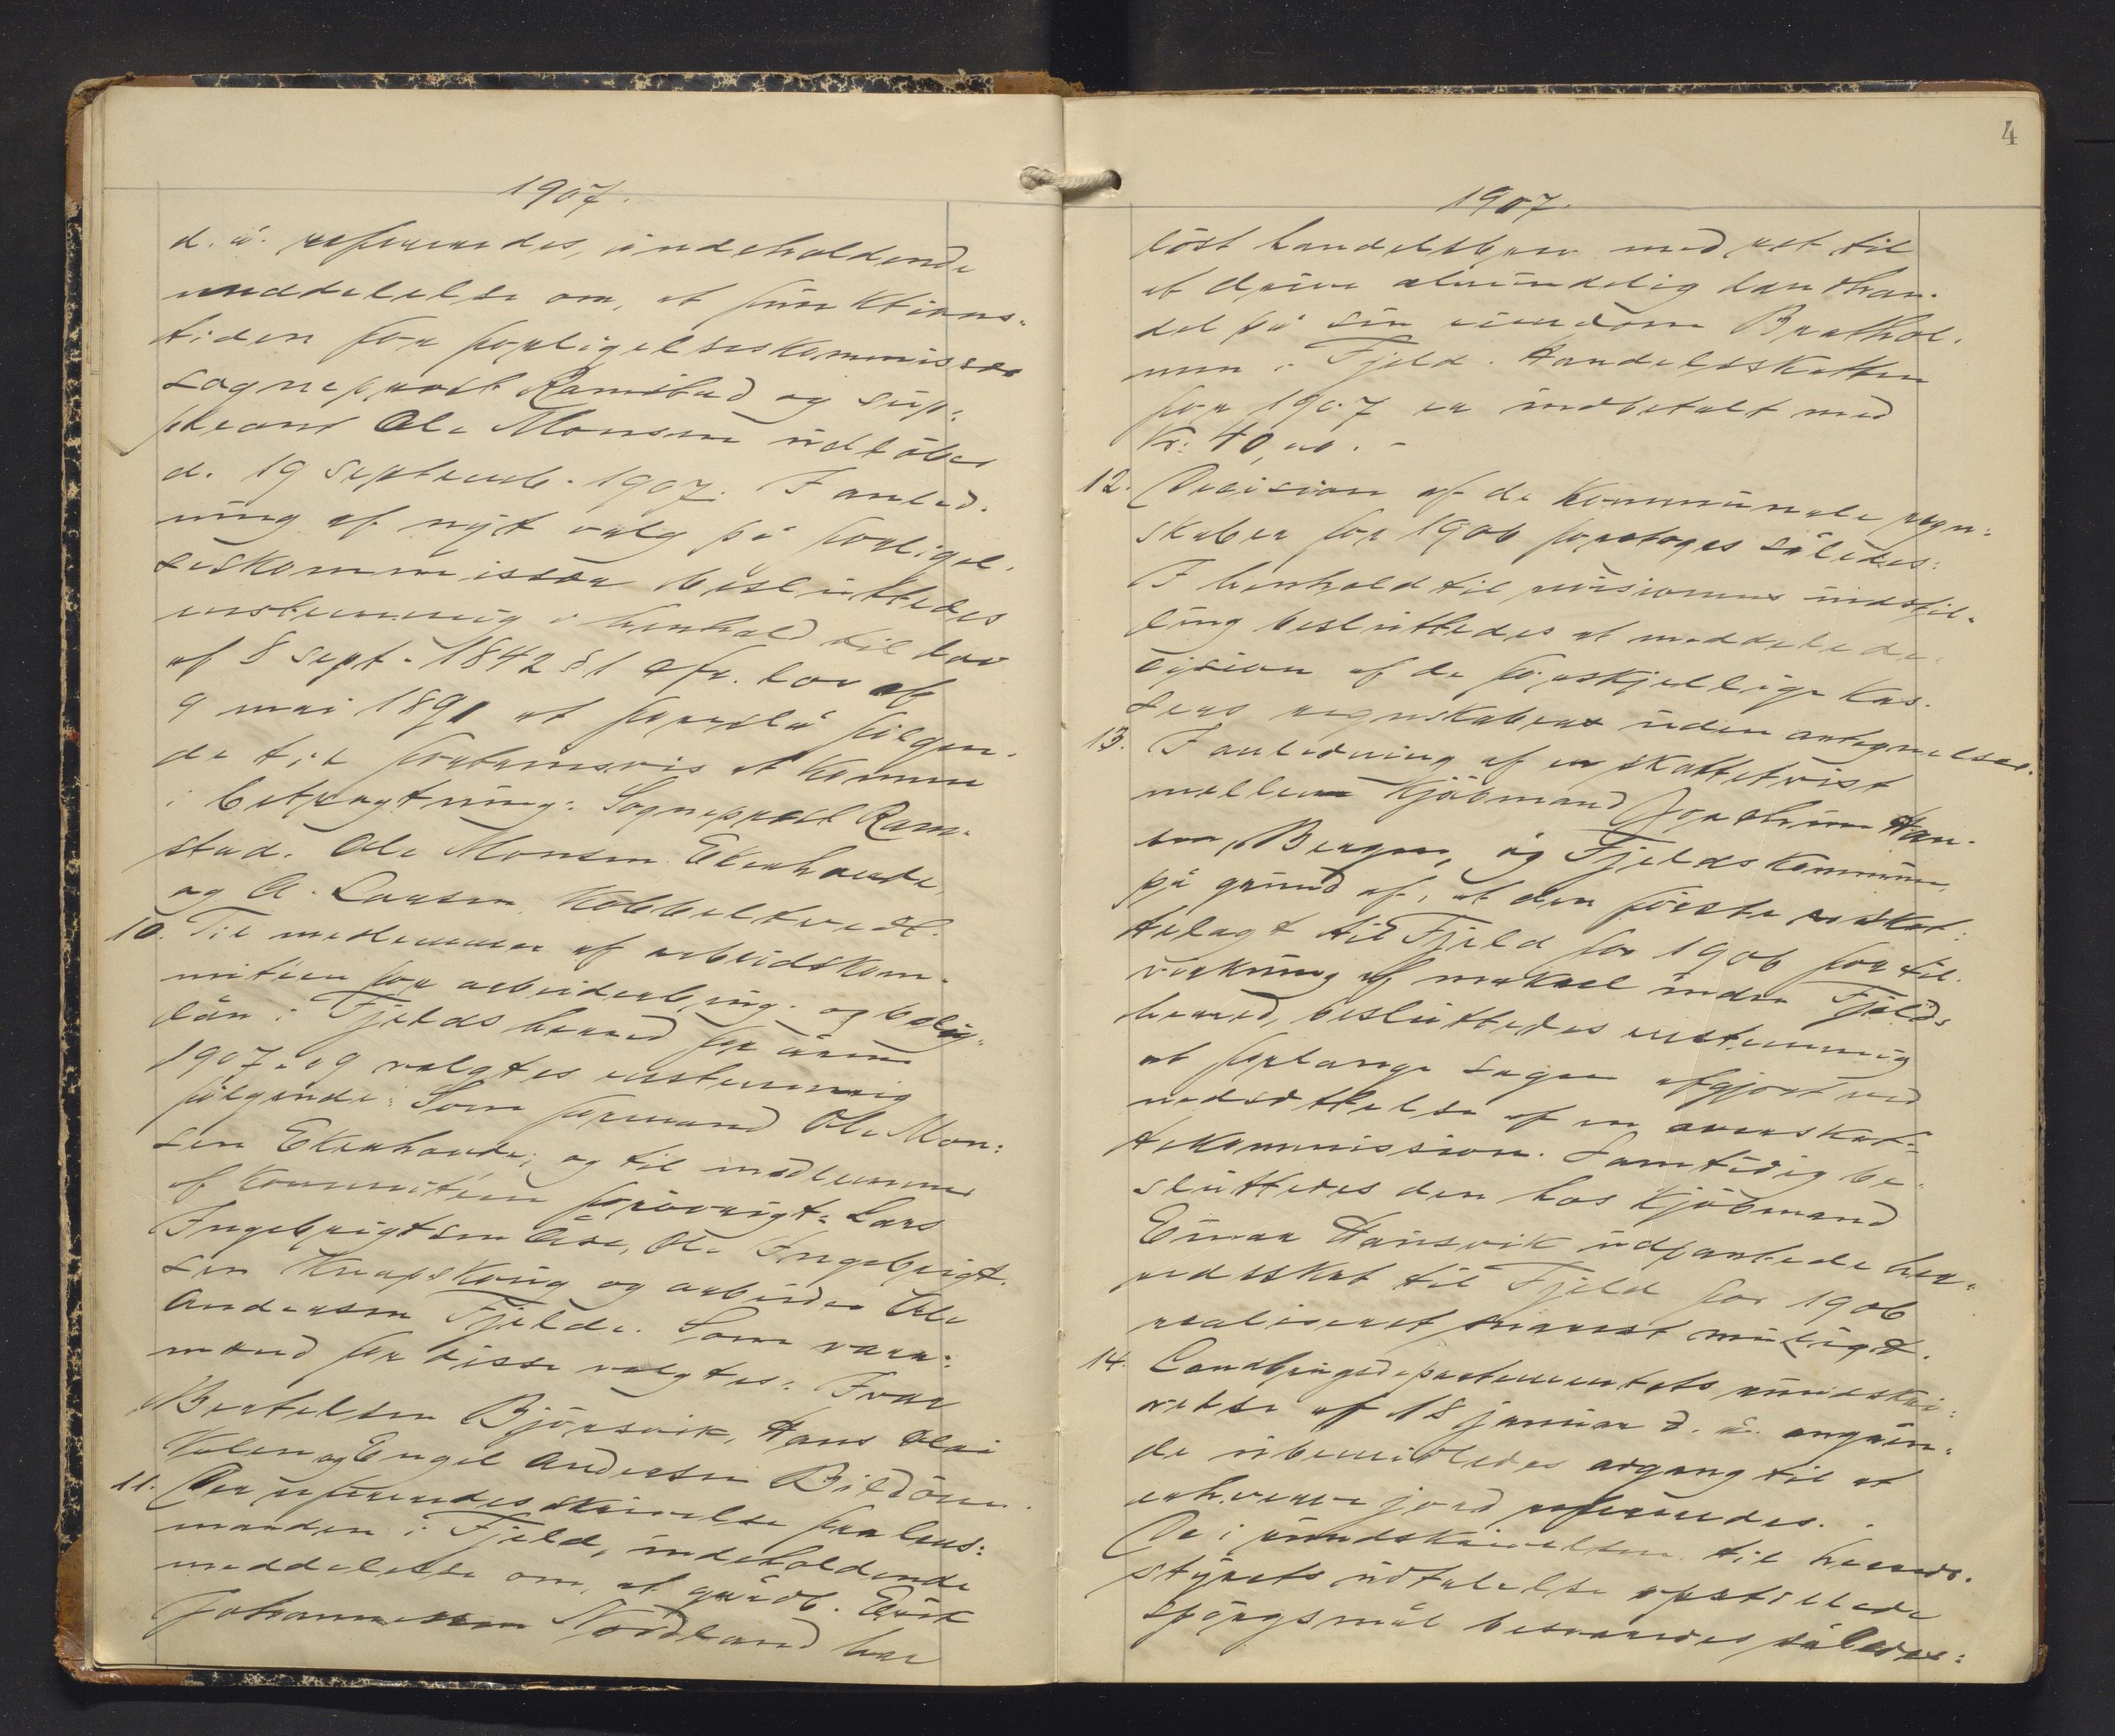 1907.
d. å. refereredes, indeholdende
meddelelse om, at funktions-
tiden for forligelseskommissær
sogneprest Ramstad og sup-
pleant Ole Monsen udløber
d. 19 septemb. 1907. I anled-
ning af nyt valg på forligel-
seskommissær besluttedes
enstemmig i henhold til lov
af 8 sept. 1842 § 1 cfr. lov af
9 mai 1891 at foreslå følgen-
de til fortrinsvis at komme
i betragtning: Sogneprest Ram-
stad. Ole Monsen Ekerhovde,
og A. Larsen Kobbeltvedt.
10. Til medlemmer af arbeidskom-
miteen for arbeiderbrug- og bolig-
lån i Fjelds herred for årene
1907-09 valgtes enstemmig
følgende: Som formand Ole Mon-
sen Ekerhovde; og til medlemmer
af kommiteen forøvrigt: Lars
Ingebrigtsen Åse, Ole Ingebrigt-
sen Knapskoug og arbeider Ole
Andersen Fjelde. Som vara-
mænd for disse valgtes: Ivar
Bertelsen Bjørsvik, Hans Olai
Kolen og Engel Andersen Bildøen.
11. Der refereredes skrivelse fra lens-
manden i Fjeld, indeholdende
meddelelse om, at gårdb. Erik
Johannessen Nordland har
4
1907.
løst handelsbrev med ret til
at drive almindelig landhan-
del på sin eiendom Brathol-
men i Fjeld. Handelsskatten
for 1907 er indbetalt med
Kr: 40,00. -
12. Decision af de kommunale regn-
skaber for 1906 foretoges således:
I henhold til revisionens indstil-
ling besluttedes at meddele de-
cision af de forskjellige kas-
sers regnskaber uden antegnelser.
13. I anledning af en skattetvist
mellem Kjøbmand Joachim Han-
sen, Bergen, og Fjelds kommune,
på grund af, at den første er skat-
telagt til Fjeld for 1906 for til-
virkning af makrel inden Fjelds
herred, besluttedes enstemmig
at forlange sagen afgjort ved
nedsættelse af en overskat-
tekommission. Samtidig be-
sluttedes den hos Kjøbmand
Einar Hausvik udpantede her-
redsskat til Fjeld for 1906
realiseret snarest muligt.
14. Landbrugsdepartementets rundskri-
velse af 18 januar d. å. angåen-
de ubemidledes adgang til at
erhverve jord refereredes.
De i rundskrivelsen til herreds-
styrets udtalelse opstillede
spørgsmål besvaredes således: